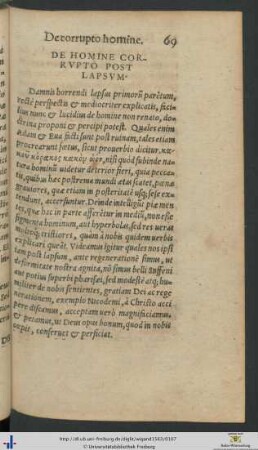 De corrupto homine. 69
DE HOMINE COR-
RVPTO POST
LAPSVM.
Damnis horrendi lapsus primorū parētum,
rectè perspectis & mediocriter explicatis, faci-
lius nunc & lucidius de homine non renato, do-
ctrina proponi & percipi potest. Quales enim
Adam & Eua facti sunt post ruinam, tales etiam
procrearunt fœtus, sicut prouerbio dicitur,
κακὸν, nisi quòd subinde na-
tura hominū videtur deterior fieri, quia pecca-
ta, quibus hæc postrema mundi ætas scatet, pœnæ
grauiores, quæ etiam in posteritatē usq; sese ex-
tendunt, accersuntur. Deinde intelligūt pia men
tes, quæ hac in parte afferūtur in mediū, non esse
figmenta hominum, aut hyperbolas, sed res ueras
multoq; tristiores, quàm à nobis quidem uerbis
explicari queāt. Videamus igitur quales nos ipsi
iam post lapsum, ante regenerationē simus, ut
deformitate nostra agnita, nō simus belli Suffeni
aut potius superbi pharisei, sed modestè atq; hu-
militer de nobis sentientes, gratiam Dei ac rege
nerationem, exemplo Nicodemi, à Christo acci
pere discamus, acceptam uerò magnificiamus,
& petamus, ut Deus opus bonum, quod in nobis
cœpit, conseruet & perficiat.
http://dl.ub.uni-freiburg.de/diglit/wigand1563/0167
© Universitätsbibliothek Freiburg